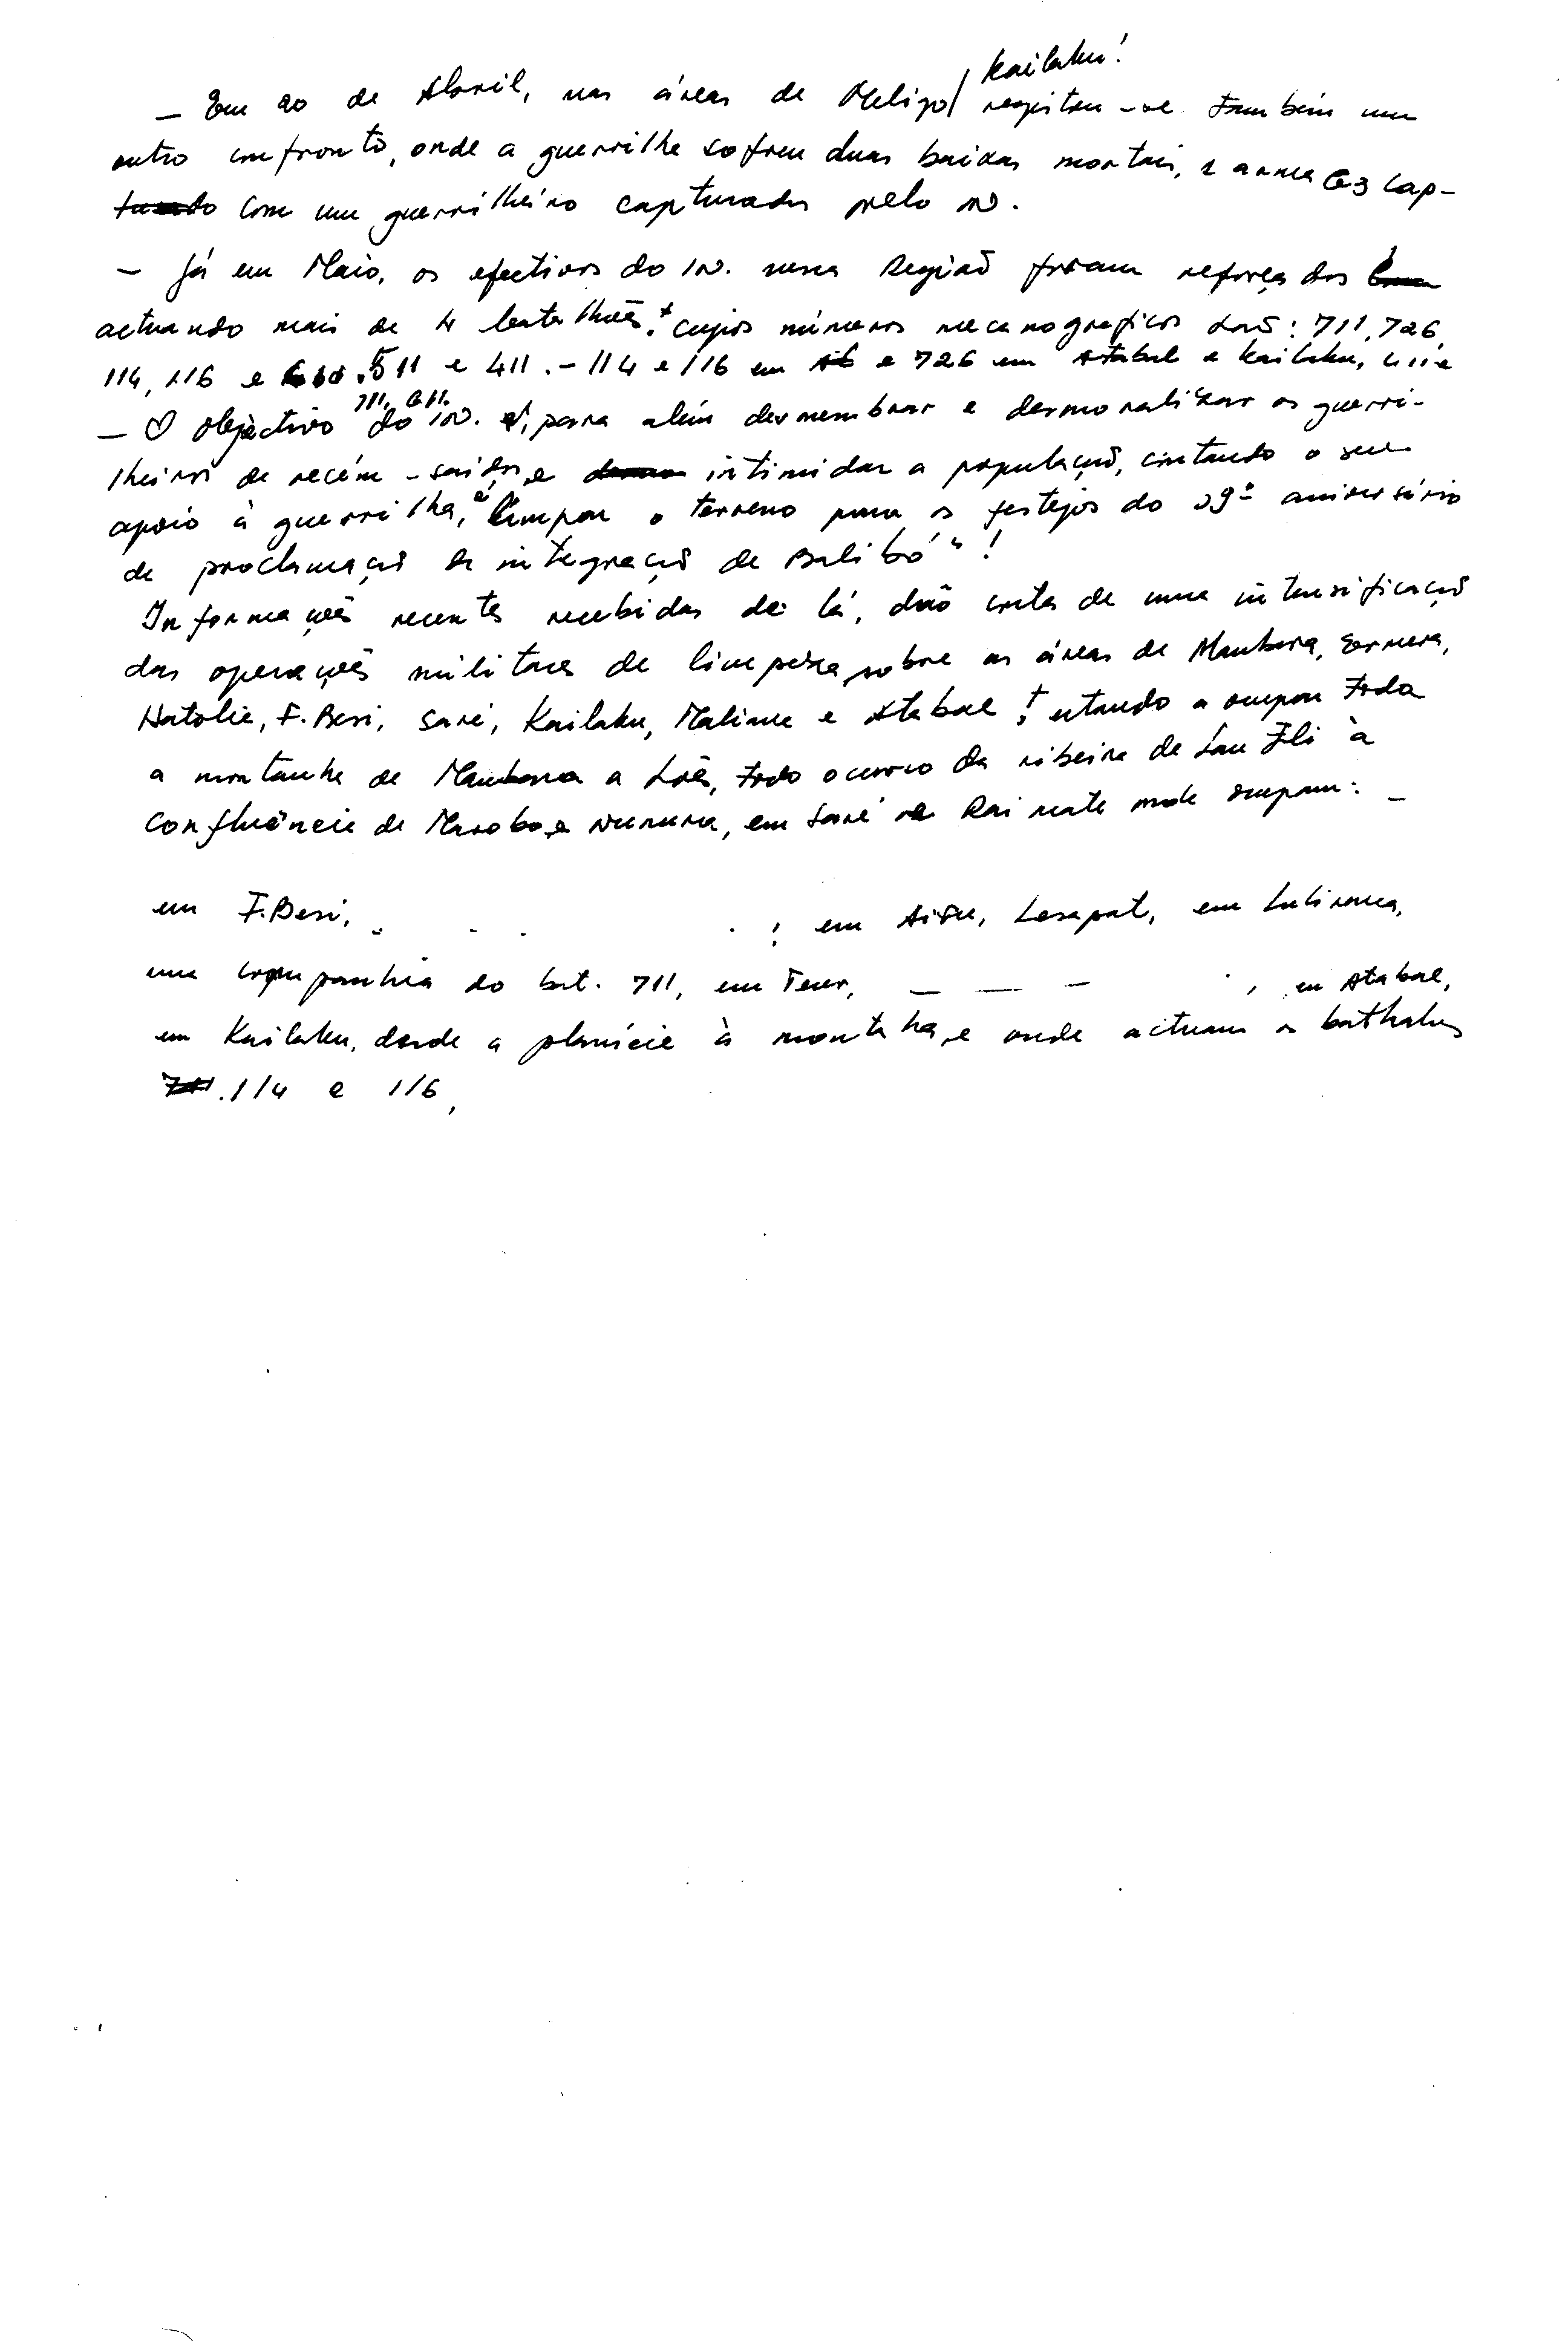 Kailaku!
— Em 20 de Abril, nas áreas de Meligo/ registou-se também um
outro confronto, onde a guerrilha sofreu duas baixas mortais, 1 arma G3 cap-
com um guerrilheiro capturados pelo in.
— Já em Maio, os efectivos do in. nessa Região foram reforçados
actuando mais de 4 batalhões, cujos números mecanográficos são: 711, 726,
114, 116 e 511 e 411. – 114 e 116 em e 726 em Atabae e Kailaku, 411 e
711, 611.
— O objectivo do in. é, para além desmembrar e desmoralizar os guerri-
lheiros de recém-saídos, e intimidar a população, cortando o seu
apoio à guerrilha, é "limpar o terreno para os festejos do 19º aniversário
de proclamação da integração de Balibó"!
Informações recentes recebidas de lá, dão conta de uma intensificação
das operações militares de limpeza sobre as áreas de Maubara, Ermera,
Hatolia, F. Besi, Saré, Kailaku, Maliana e Atabae, estando a ocupar toda
a montanha de Maubara a Loés, todo o curso da ribeira de Lau Eli à
confluência de Marobo e Nunura, em Saré e Rai mate onde ocupam: –
em F. Besi, ; em Aifu, Lesapat, em Lulirema,
uma companhia do bat. 711, em Feur, — — – , em Atabae,
em Kailaku, desde a planície à montaha, e onde actuam os bathalões
114 e 116,